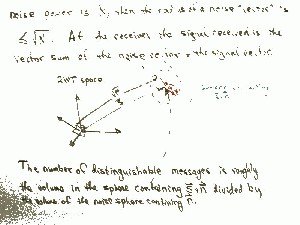 noise power is N, then the radius of a noise "vector" is
≤ √N. At the receiver the signal received is the
vector sum of the noise vector + the signal vector.
2WT space
The number of distinguishable messages is roughly
the volume in the sphere containing S+n divided by
the volume of the noise sphere containing n.